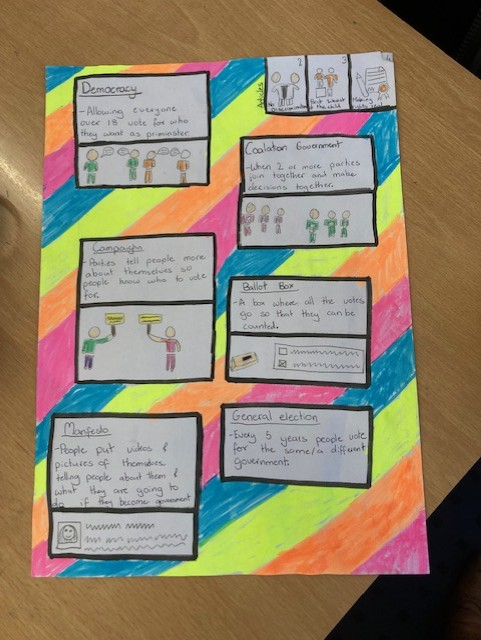 Articles
2
No discrimination
3
Best interest
of the child
4
Making
rights real
Democracy
- Allowing everyone
over 18 vote for who
they want as priminster.
Coalation Government
- When 2 or more parties
join together and make
decisions together.
Campaighn
- Parties tell people more
about themselves so
people know who to vote
for.
Ballot Box
- A box where all the votes
go so that they can be
counted.
Manfesto
- People put videos &
pictures of themselves
telling people about them &
what they are going to
do if they become government
General election
- Every 5 years people vote
for the same/a different
government.